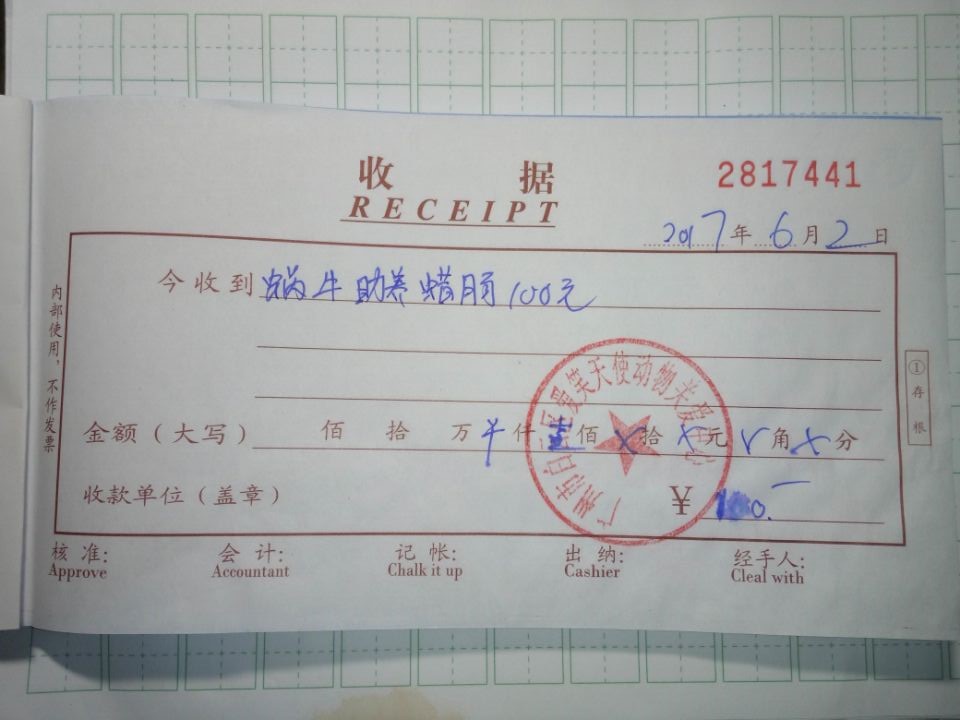 收 据
RECEIPT
2817441
2017年6月2日
今收到 蜗牛助养腊肠100元
金额（大写） 佰 拾 万 仟 壹佰 ×拾 ×元 ×角 ×分
收款单位（盖章） ¥ 100.—
内部使用，不作发票
①存根
广州市白云区爱笑天使动物关爱中心
核 准: 会 计: 记 帐: 出 纳: 经手人:
Approve Accountant Chalk it up Cashier Cleal with